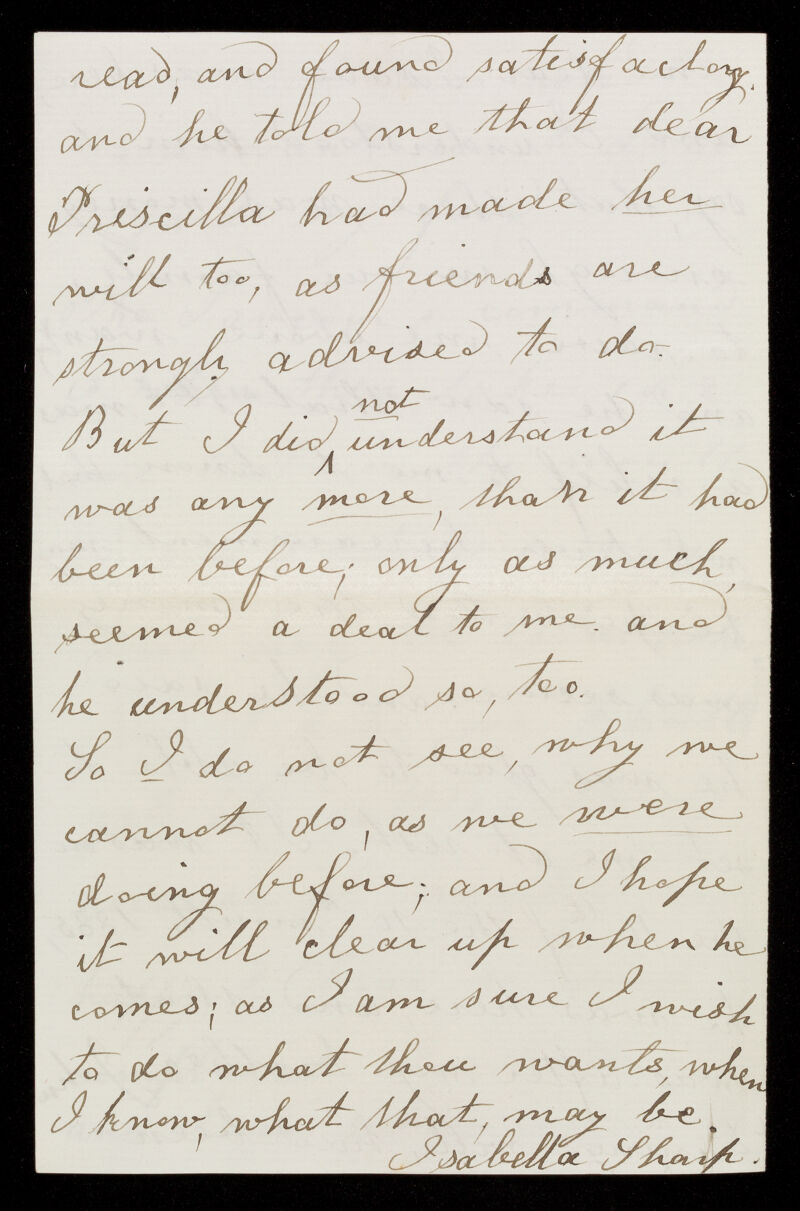 read, and found satisfactory.
and he told me that dear
Priscilla had made her
will too, as friends are
strongly advised to do.
not
But I did understand it
was any more, than it had
been before; only as much,
seemed a deal to me. and
he understood so, too.
So I do not see, why we
cannot do, as we were
doing before; and I hope
it will clear up when he
comes; as I am sure I wish
to do what thou wants, when
I know, what that, may be.
Isabella Sharp.